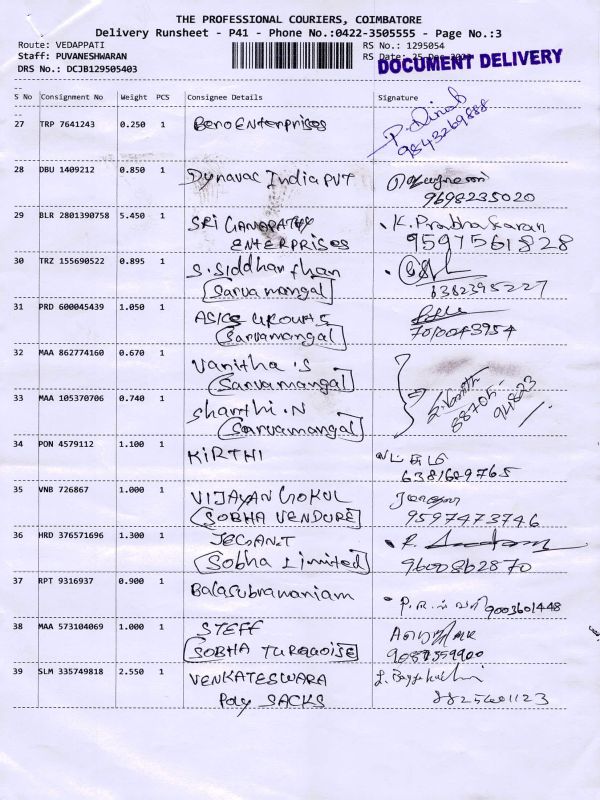 THE PROFESSIONAL COURIERS, COIMBATORE
Delivery Runsheet - P41 - Phone No.:0422-3505555 - Page No.:3
Route: VEDAPPATI
RS No.: 1295054
Staff: PUVANESHWARAN
RS Date: 25
DOCUMENT DELIVERY
DRS No.: DCJB129505403
S No Consignment No Weight PCS Consignee Details Signature
27 TRP 7641243 0.250 1 Beno Enterprises
9843269888
28 DBU 1409212 0.850 1 Dynavac India PVT
9698235020
29 BLR 2801390758 5.450 1 SRI GANAPATHY K. Prabhakaran
ENTERPRISES 9597561828
30 TRZ 155690522 0.895 1 S. Siddharthan
Sarvamangal 6382395227
31 PRD 600045439 1.050 1 ASICS GROUPS
Sarvamangal 7010043954
32 MAA 862774160 0.670 1 Vanitha S
Sarvamangal
33 MAA 105370706 0.740 1 Shanthi.N 88705- 94823
Sarvamangal
34 PON 4579112 1.100 1 KIRTHI
6381689765
35 VNB 726867 1.000 1 VIJAYAN GOKUL
SOBHA VENDURE 9597473746
36 HRD 376571696 1.300 1
Sobha Limited 9600862870
37 RPT 9316937 0.900 1 Balasubramaniam
9003601448
38 MAA 573104069 1.000 1 STEFF
SOBHA TURQUOISE 9087359900
39 SLM 335749818 2.550 1 VENKATESWARA
Poly SACKS 8825401123